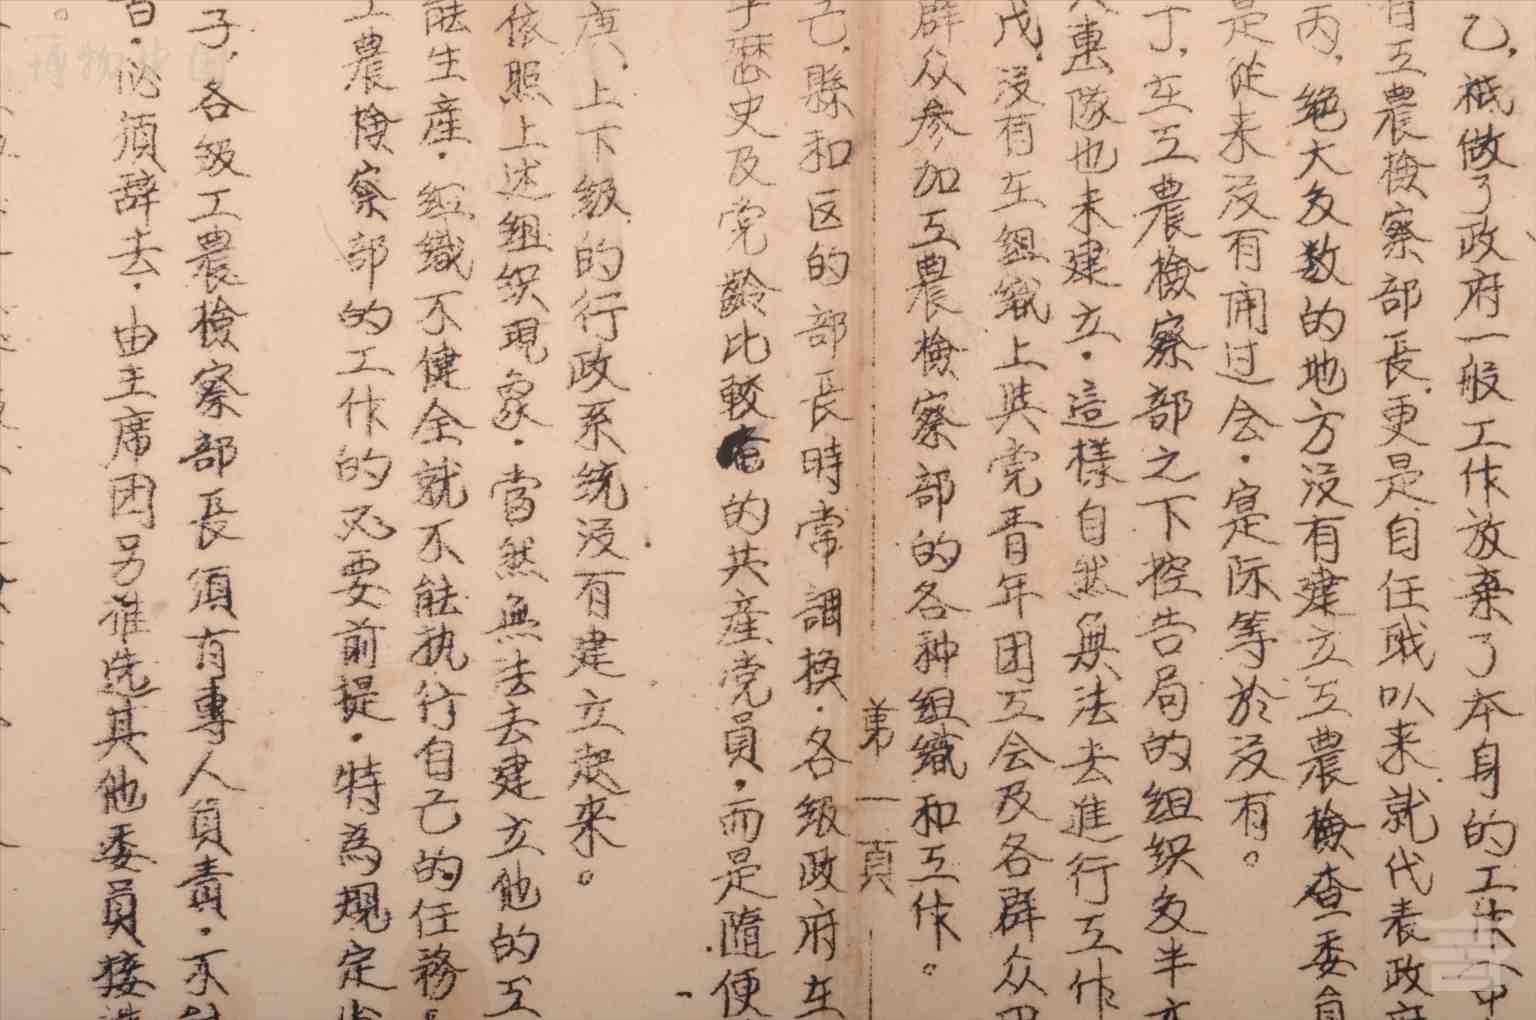 乙，祗做了政府一般工作放棄了本身的工作
有工農檢察部長，更是自任职以来，就代表政府
丙，绝大多数的地方没有建立工農檢查委員
是從来没有開过会．寔际等於没有。
丁，在工農檢察部之下控告局的组织多半
隊也未建立．這樣自然無法去進行工作
戊，没有在组織上與党青年团工会及各群众团
群众参加工農檢察部的各种组織和工作。
第一頁
己，縣和区的部長時常調換．各级政府在
歷史及党齡比較的共產党員．而是隨便
庚，上下级的行政系统没有建立起来。
依照上述组织現象．當然無法去建立他的工
能生產．组織不健全就不能执行自己的任務
工農檢察部的工作的必要前提．特為規定
子，各级工農檢察部長須有專人負責．不
必須辞去．由主席团另推选其他委員接
博物中国